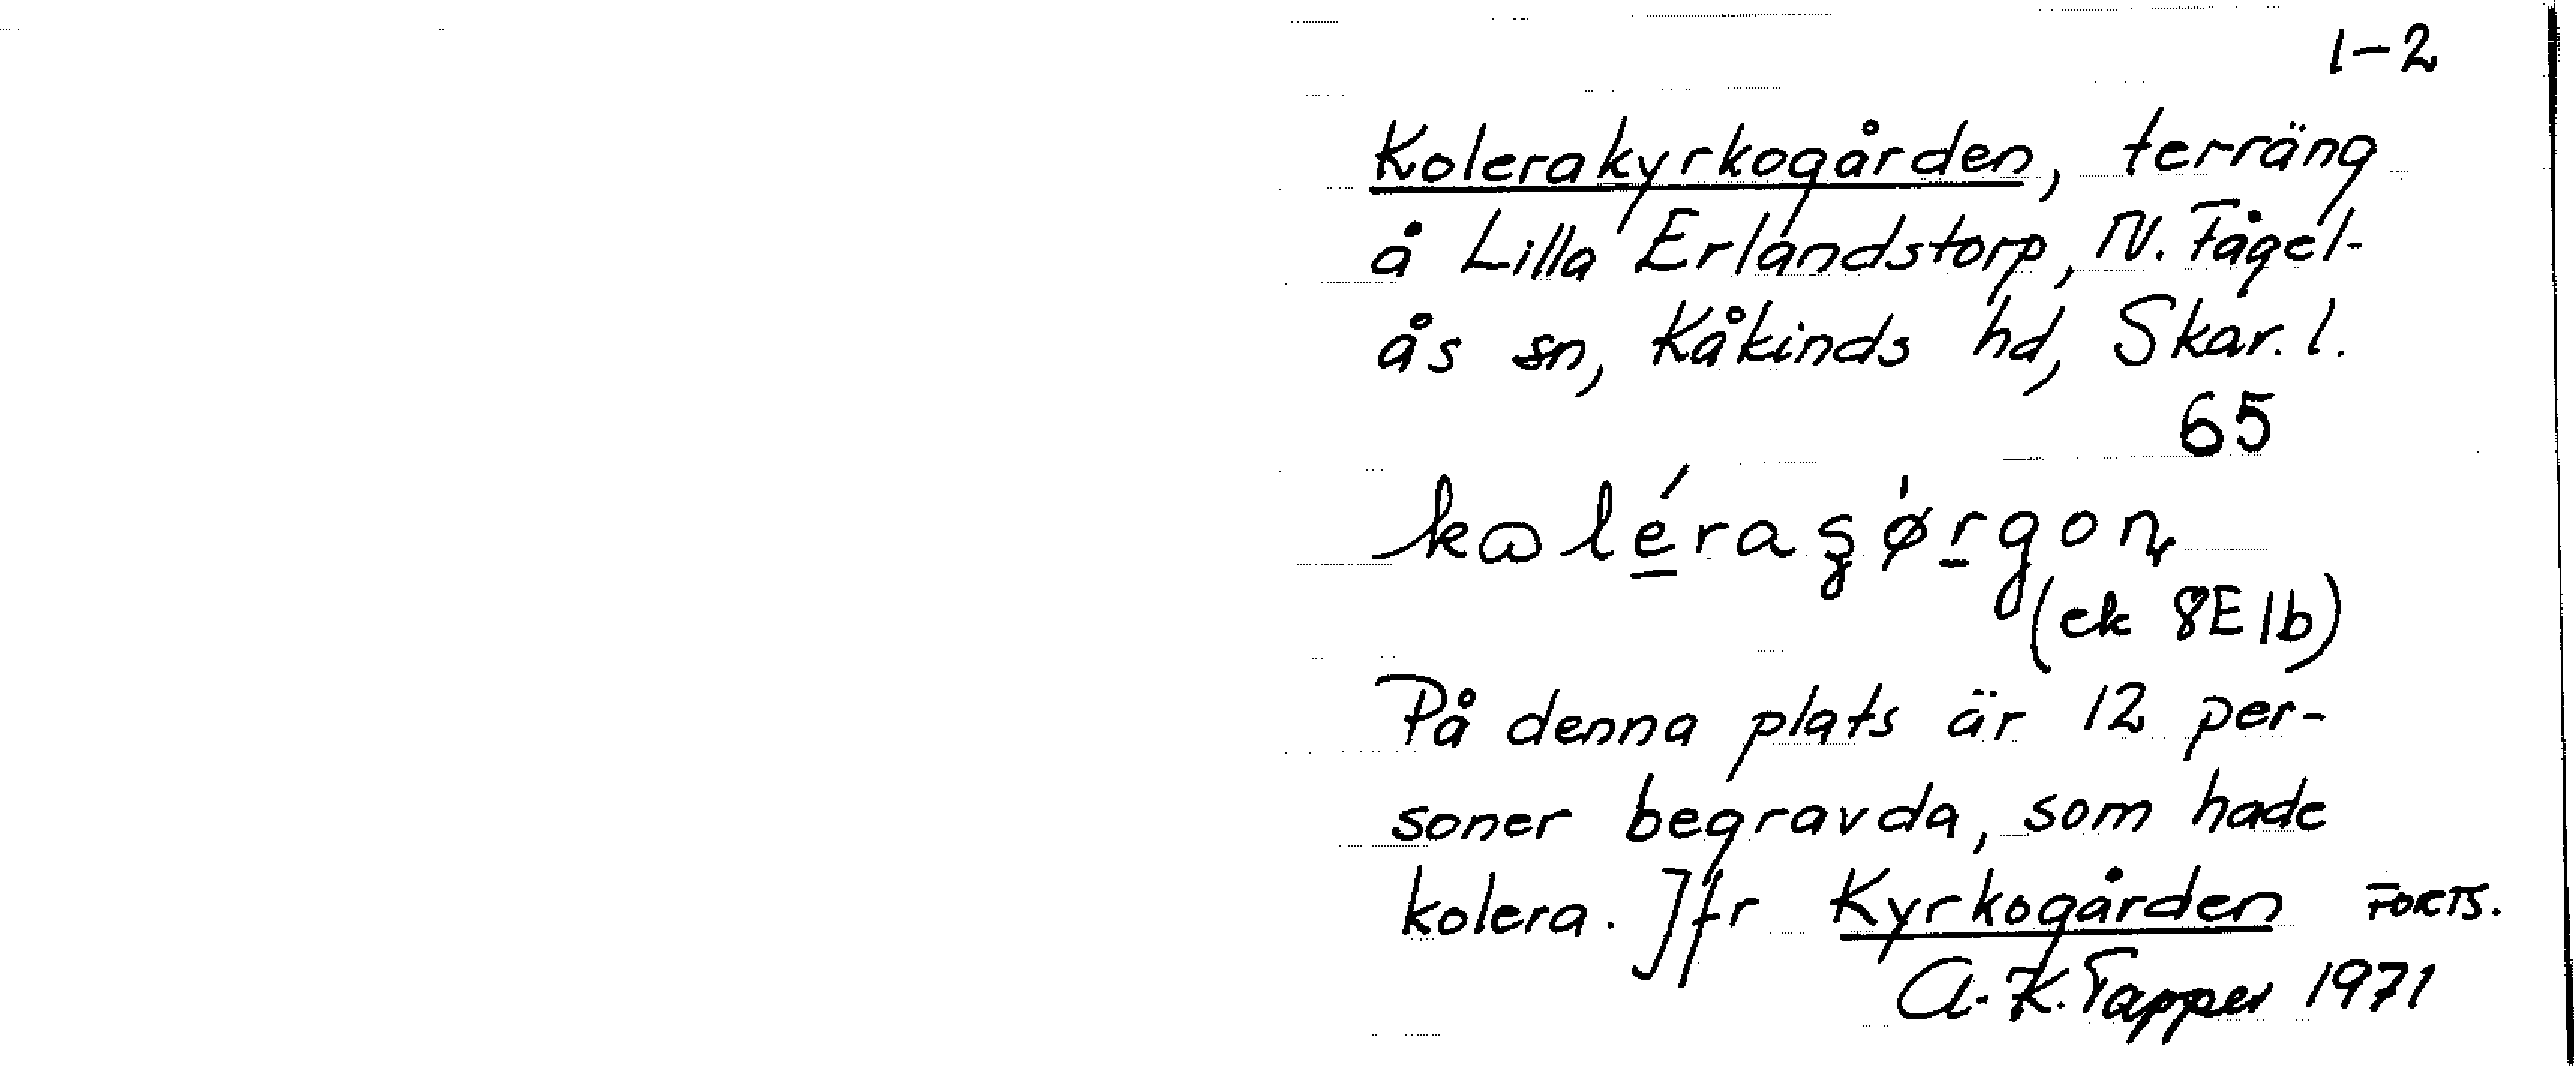 1-2
Kolerakyrkogården, terräng
å Lilla Erlandstorp, N. Fågel-
ås sn, Kåkinds hd, Skar. l.
65
(ek 8E1b)
På denna plats är 12 per-
soner begravda, som hade
kolera. Jfr Kyrkogården FORTS.
A.-K. Tapper 1971